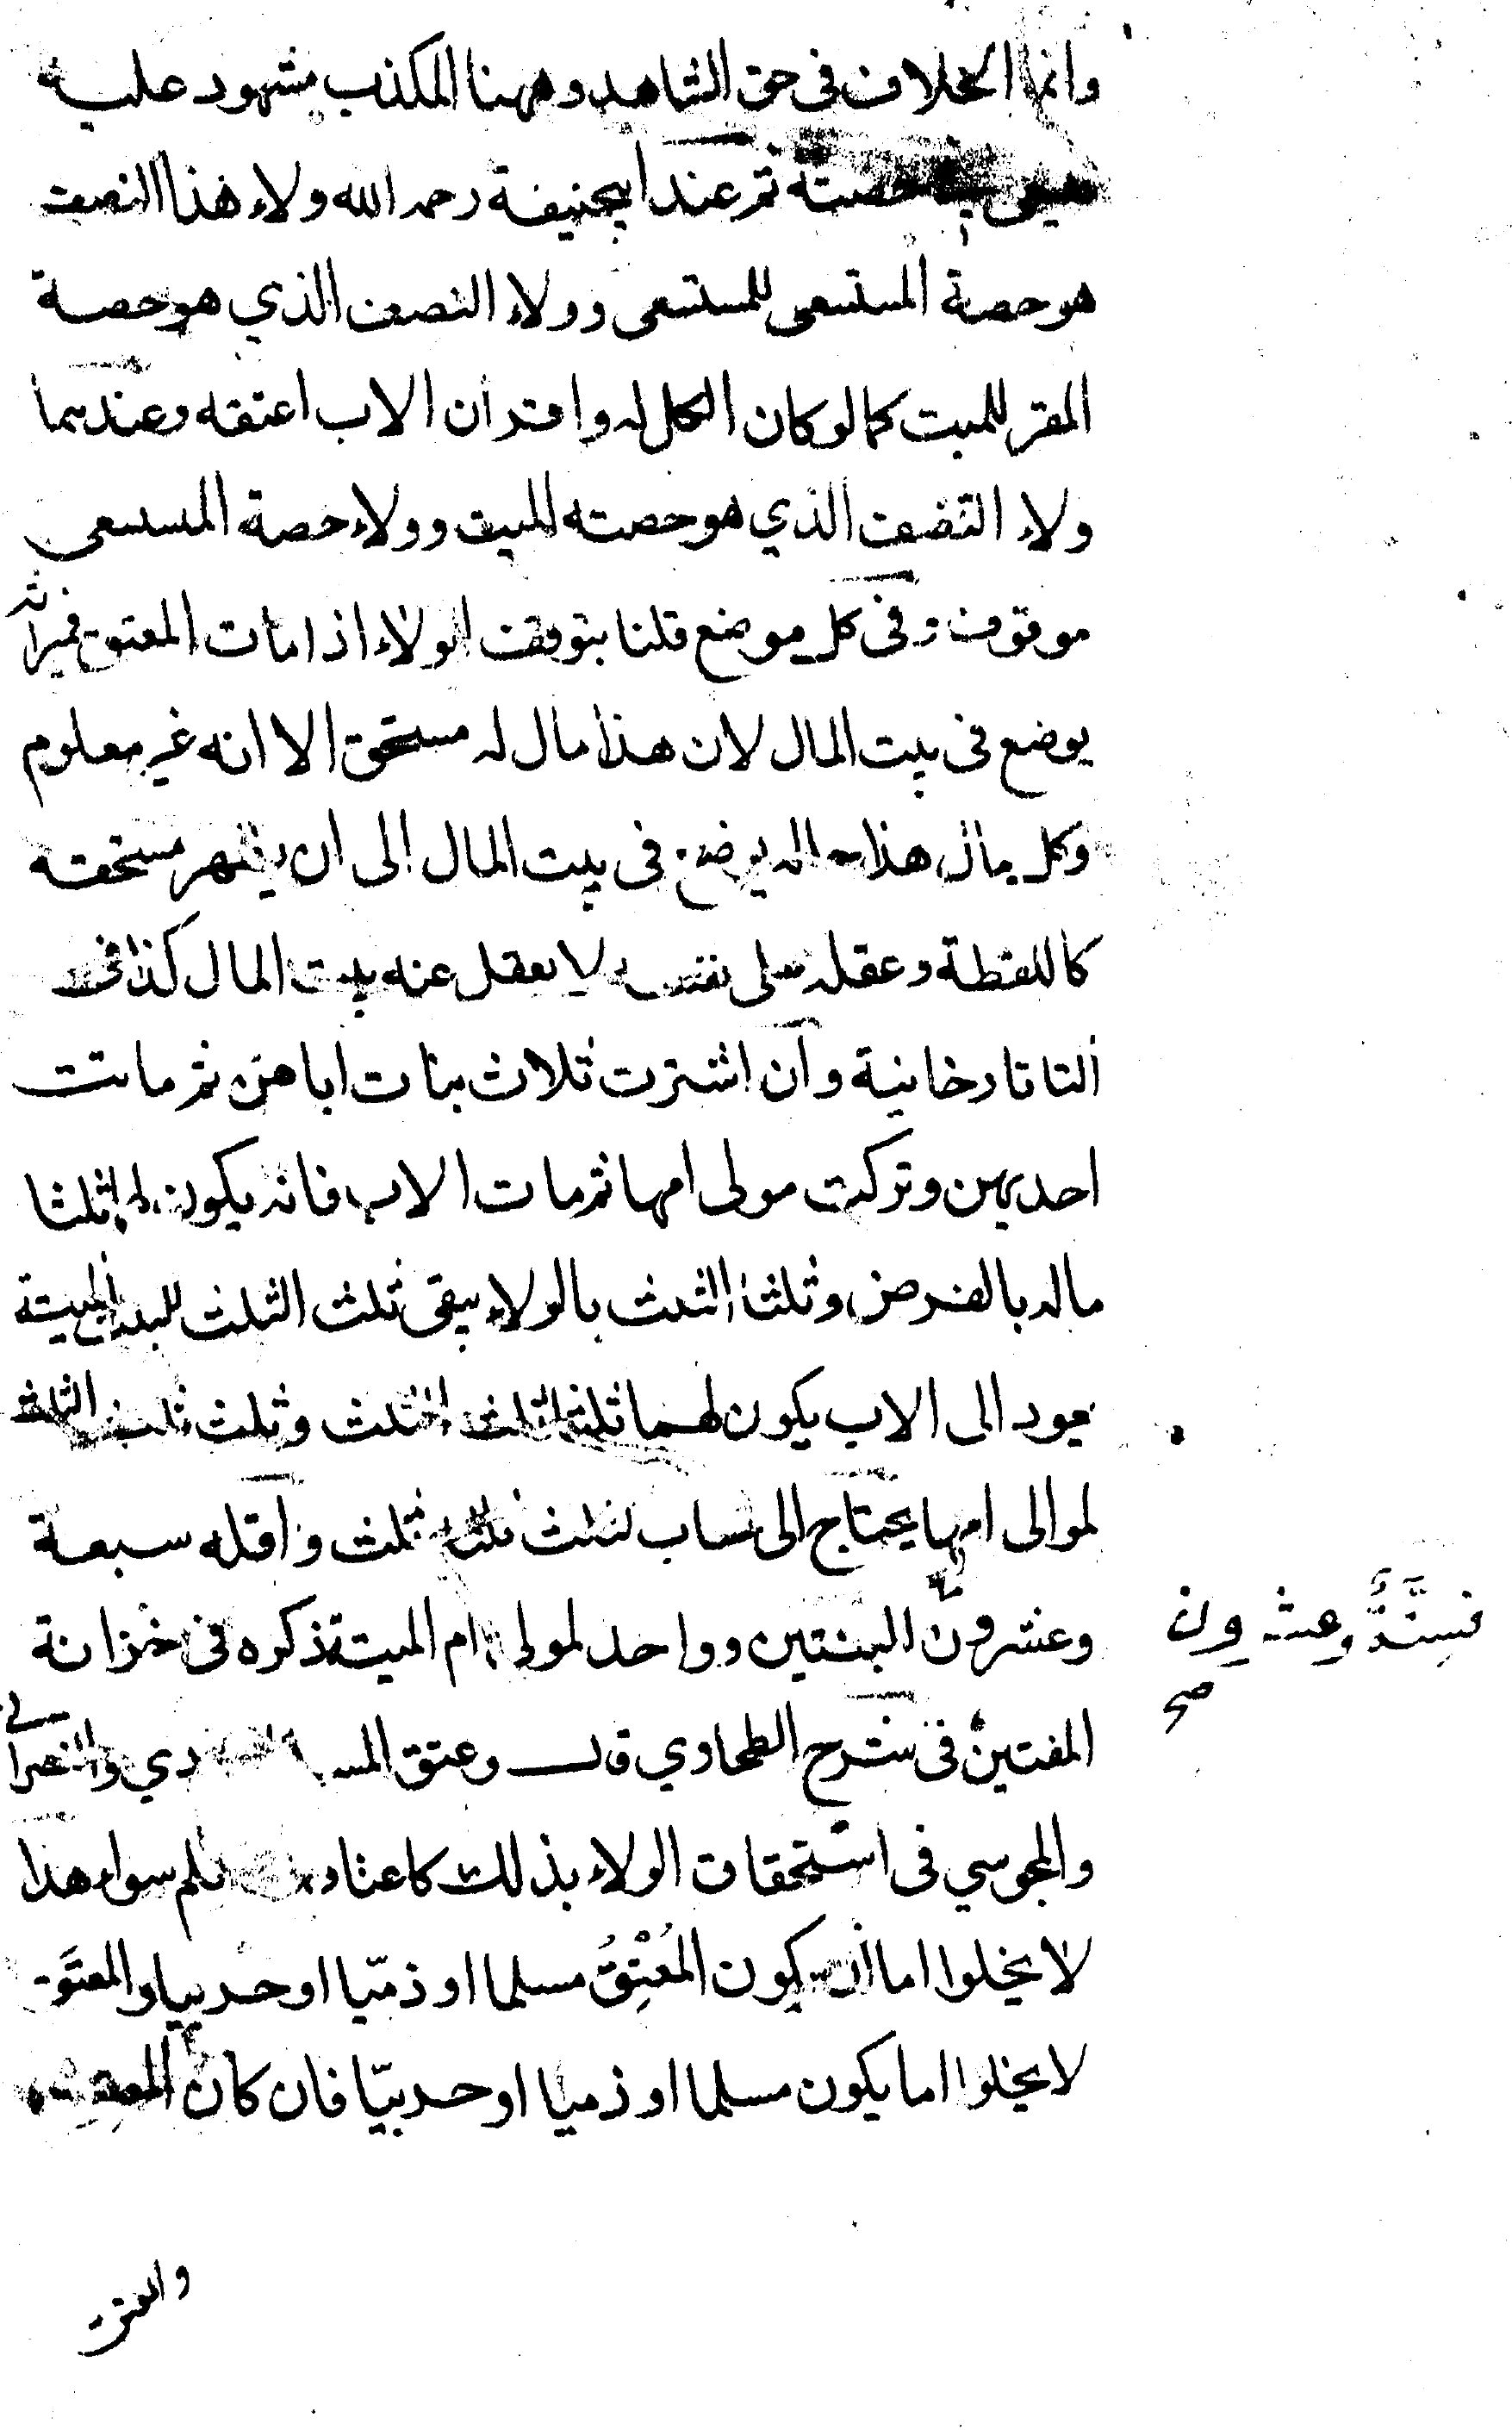 وانما الخلاف فى حق الشاهد وههنا المكذب مشهود عليه
حصته ثم عند ابيحنيفة رحمه الله ولاء هذا النصف
هو حصة المستسعى للمستسعى وولاء النصف الذي هو حصة
المقر للميت كما لو كان الكل له واقر ان الاب اعتقه وعندهما
ولاء النصف الذي هو حصته للميت وولاء حصة المستسعى
موقوف وفى كل موضع قلنا بتوقف الولاء اذا مات المعتوق فميراثه
يوضع فى بيت المال لان هذا مال له مستحق الا انه غير معلوم
وكل مال هذا حاله يوضع فى بيت المال الى ان يظهر مستحقه
كاللقطة وعقله على نفسه لا يعقل عنه بيت المال كذا فى
التاتارخانية وان اشترت ثلاث بنات اباهن ثم ماتت
احديهن وتركت مولى امها ثم مات الاب فانه يكون لهما ثلثا
ماله بالفرض وثلثا الثلث بالولاء يبقى ثلث الثلث للبنت الميتة
يعود الى الاب يكون لهما ثلثا ثلث الثلث وثلث ثلث الثلث
لموالى امها يحتاج الى حساب لثلث ثلثه ثلث واقله سبعة
وعشرون للبنتين وواحد لمولى ام الميتة ذكره فى خزانة
فستةٌ وعشرون
صح
المفتين فى شرح الطحاوي قال وعتق والنصرانى
والمجوسي فى استحقاق الولاء بذلك سواء هذا
لا يخلوا اما ان يكون المُعْتِقُ مسلما او ذميّا او حربيا والمعتَق
لا يخلوا اما يكون مسلما او ذميا او حربيّا فان كان المعتِق
والمعتق